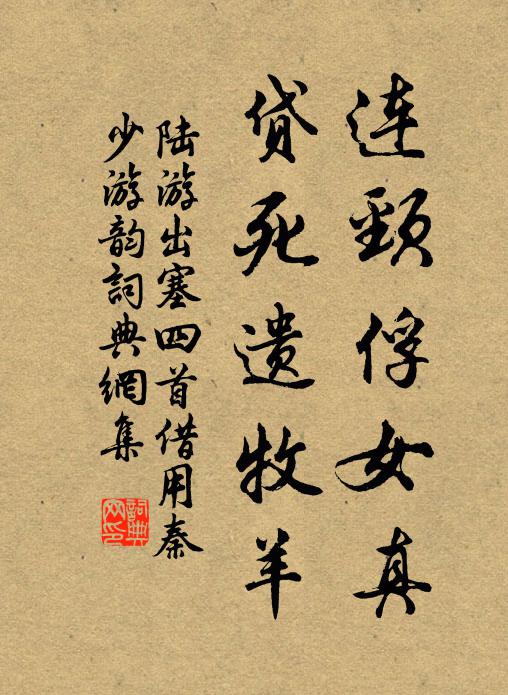 连頸俘女真
贷死遗牧羊
陆游出塞四首借用秦
少游韵詞典網集
詞典网印